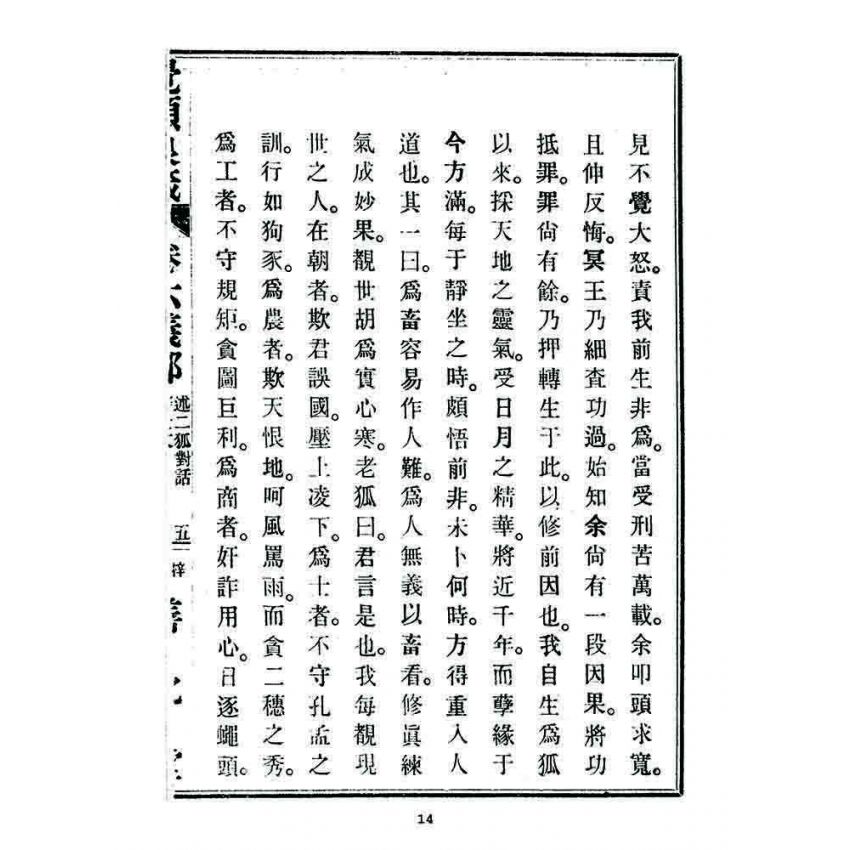 見不覺大怒。責我前生非爲。當受刑苦萬載。余叩頭求寬。
且伸反悔。冥王乃細查功過。始知余尙有一段因果。將功
抵罪。罪尙有餘。乃押轉生于此。以修前因也。我自生爲狐
以來。採天地之靈氣。受日月之精華。將近千年。而孽緣于
今方滿。每于靜坐之時。頗悟前非。未卜何時。方得重入人
道也。其一曰。爲畜容易作人難。爲人無義以畜看。修眞練
氣成妙果。觀世胡爲實心寒。老狐曰。君言是也。我每觀現
世之人。在朝者。欺君誤國。壓上凌下。爲士者。不守孔孟之
訓。行如狗豕。爲農者。欺天恨地。呵風罵雨。而貪二穗之秀。
爲工者。不守規矩。貪圖巨利。爲商者。奸詐用心。日逐蠅頭。
卷六義部
述二狐對話
五一
14